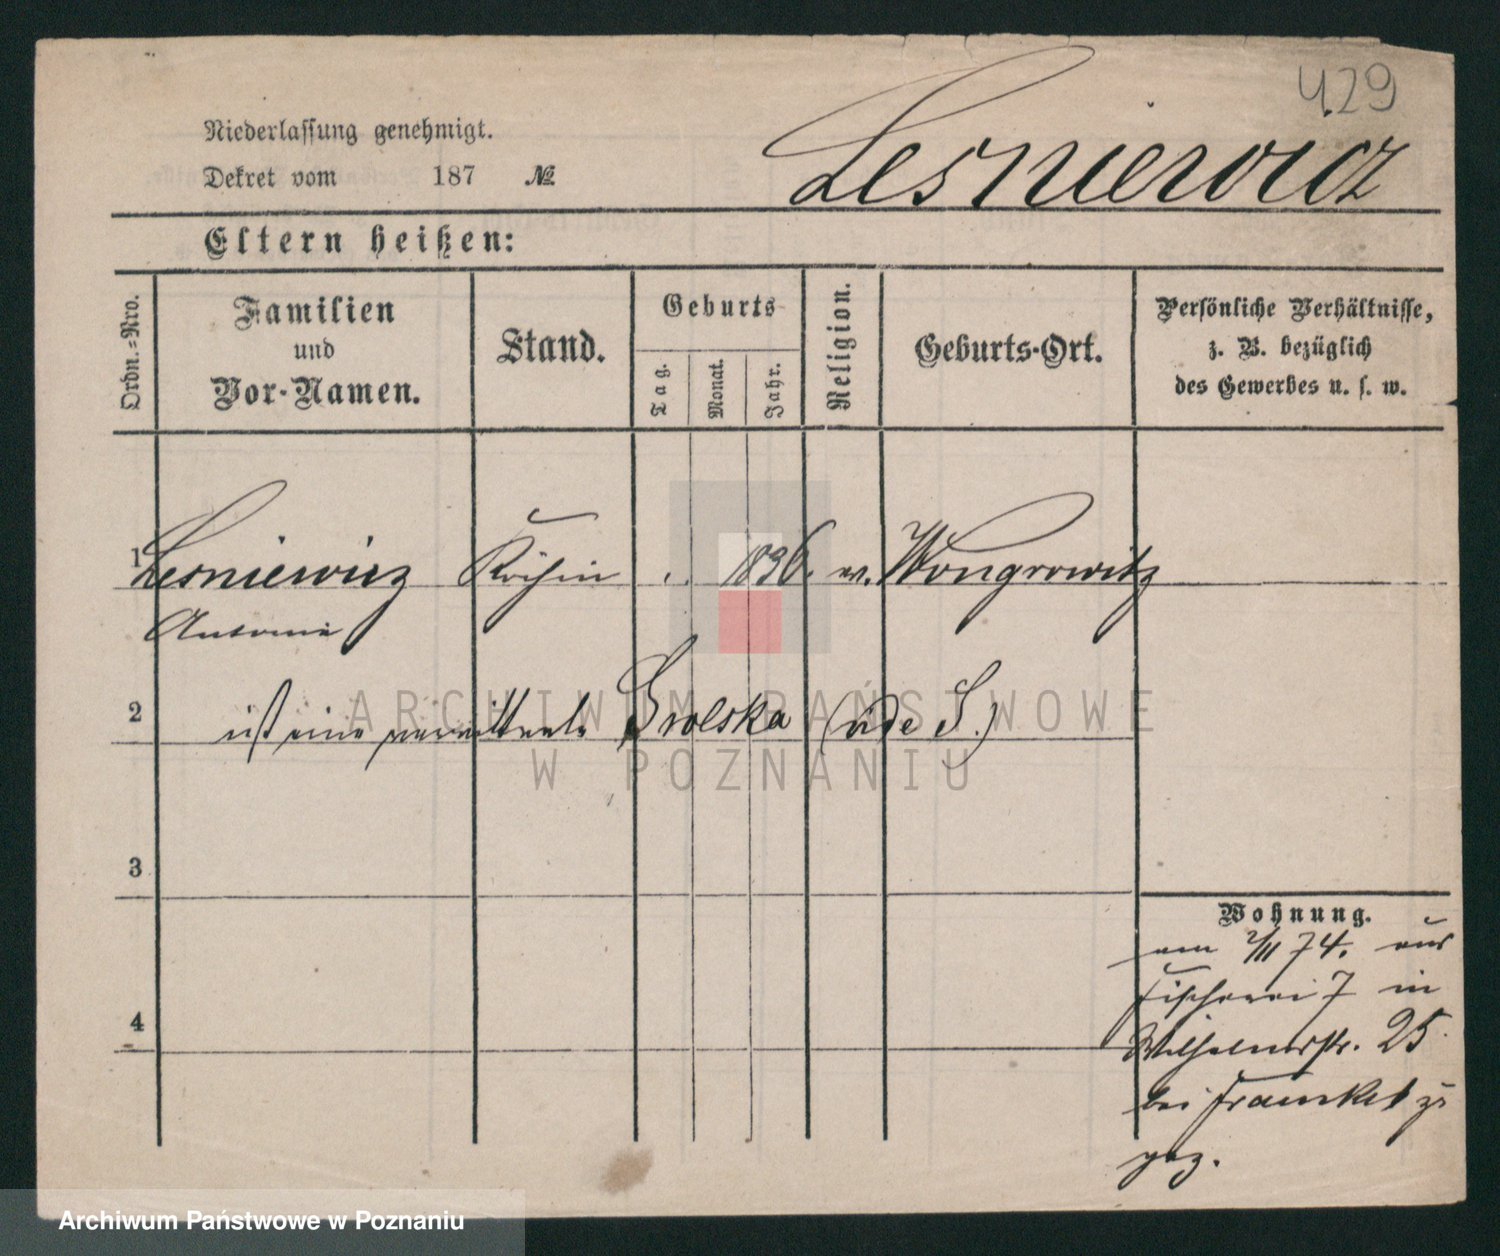 429
Niederlassung genehmigt.
Dekret vom 187 №
Lesniewicz
Eltern heißen:
Ordn.-Nro.
Familien
und
Vor-Namen.
Stand.
Geburts
Tag.
Monat.
Jahr.
Religion.
Geburts-Ort.
Persönliche Verhältnisse,
z. B. bezüglich
des Gewerbes u. s. w.
1 Lesniewicz Köchin 1836. Wongrowitz
Antonie
2 ist eine verwittwete (vide S.)
3
4
Wohnung.
am 2/II 74. aus
Fischerei 7 in
Wilhelmsstr. 25
bei Fraenkel zu
gez.
ARCHIWUM PAŃSTWOWE
W POZNANIU
Archiwum Państwowe w Poznaniu